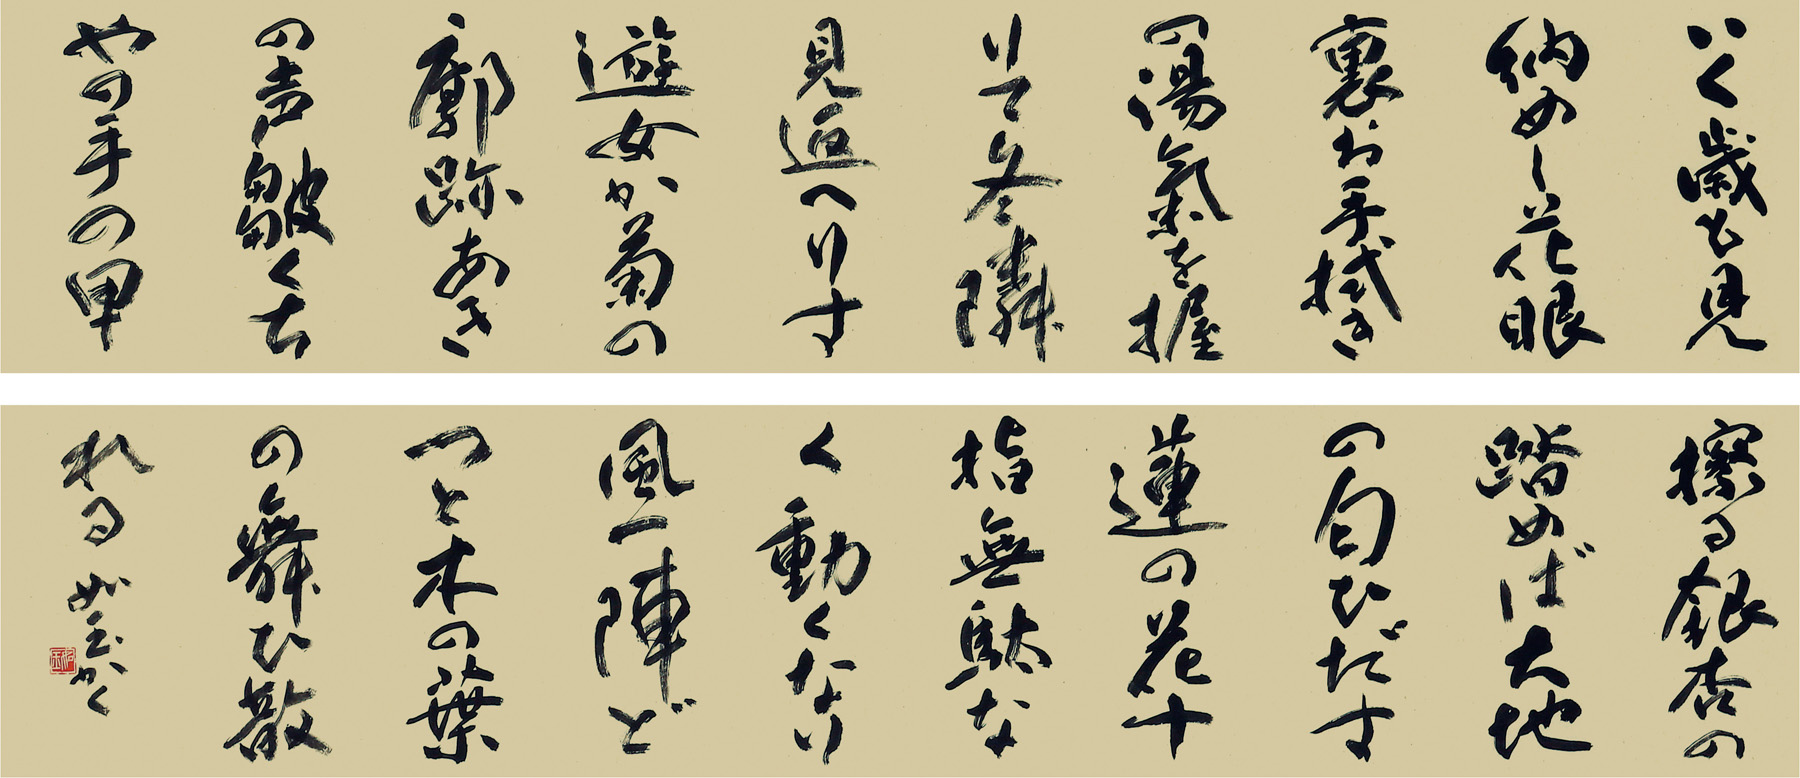 いく歳も見
納めし花眼
裏お手拭き
の湯氣を握
りて冬隣
見返へりす
遊女か菊の
廓跡あき
の声皺くち
やの手の甲
擦る銀杏の
踏めば大地
の匂ひだす
蓮の花十
指無駄な
く動くなり
風一陣ど
つと木の葉
の舞ひ散
れる 如玉かく